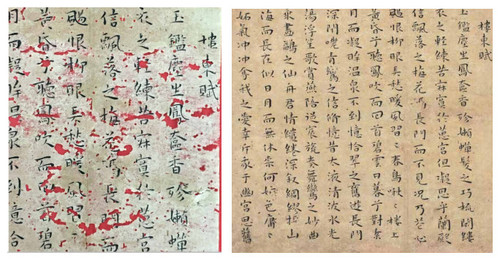 樓東賦
玉鑑塵生鳳奩香殄嬾蟬
衣之輕練苦寂寞於蕙宮
信飄落之梅花隔長門而
颺恨柳眼弄愁煖風習
黃昏兮聽鳳吹而回首碧
月而凝眸溫泉不到憶拾
樓東賦
玉鑑塵生鳳奩香殄嬾蟬鬢之巧梳閒縷
衣之輕練苦寂寞於蕙宮但凝思乎蘭殿
信飄落之梅花隔長門而不見況乃花心
颺恨柳眼弄愁煖風習習春鳥啾啾樓上
黃昏兮聽鳳吹而回首碧雲日暮兮對素
月而凝眸溫泉不到憶拾翠之舊遊長門
深閉嗟青鸞之信修憶昔太液清波水光
蕩浮笙歌賞燕陪從宸旒奏舞鸞之妙曲
乘畫鷁之仙舟君情繾綣深敘綢繆誓山
海而長在似日月而無休奈何嫉色庸庸
妒氣沖沖奪我之愛幸斥我乎幽宮思舊